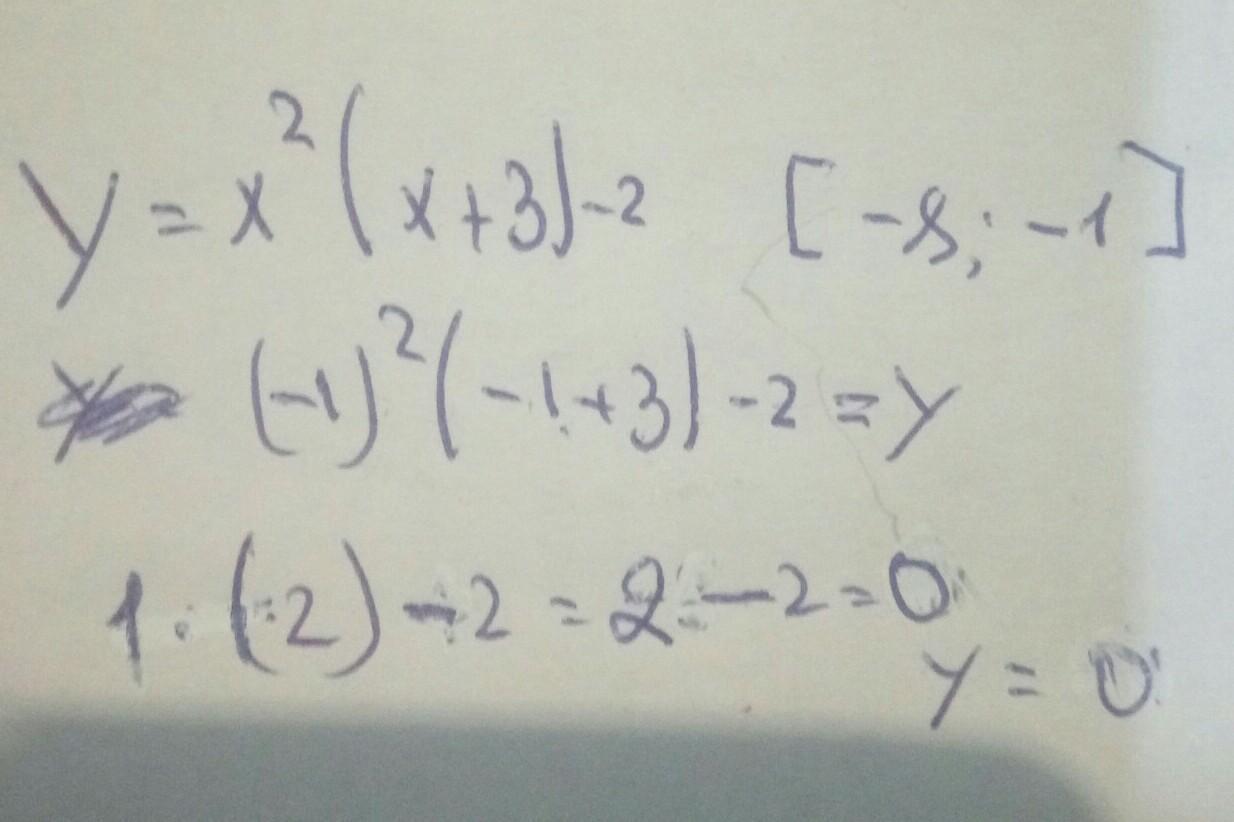 y = x²(x+3)-2 [-8; -1]
(-1)²(-1+3)-2 = y
1·(2)-2 = 2-2 = 0
y = 0